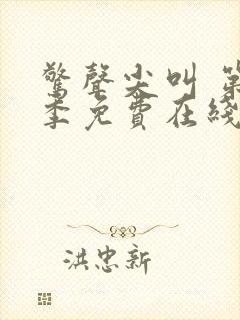 驚聲尖叫 第
季免費在綫
洪忠新